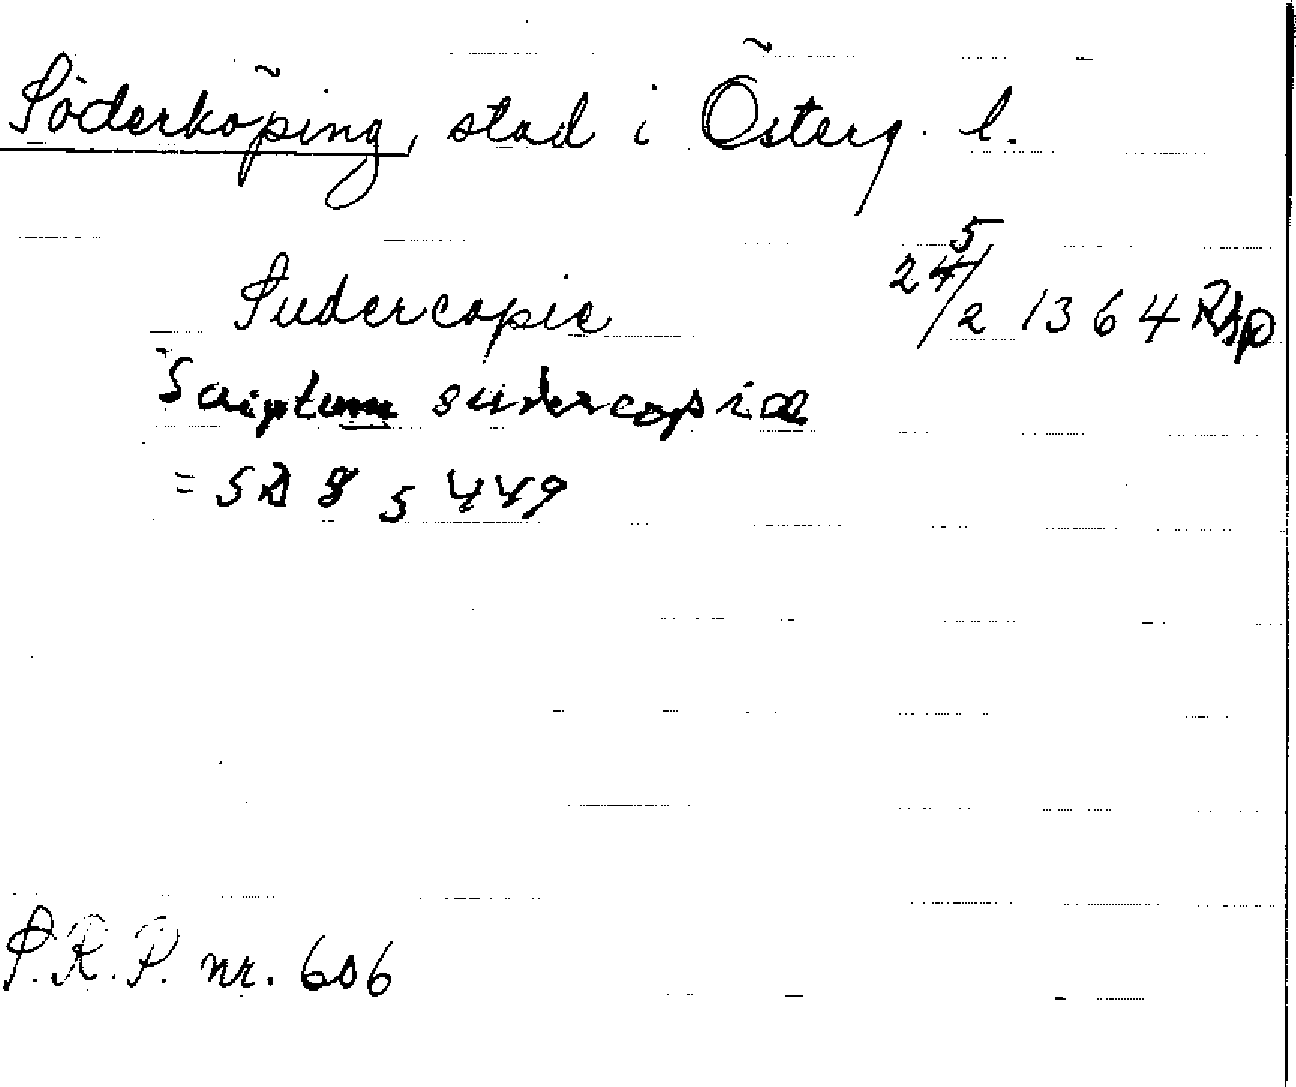 Söderköping, stad i Österg. l.
Sudercopie 25/2 1364 Rap
Scriptum sudercopiæ
= SD 8 s 449
S.R.P. nr. 606